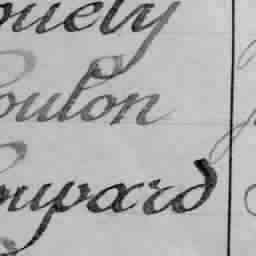 ouety
Coulon
Coupard